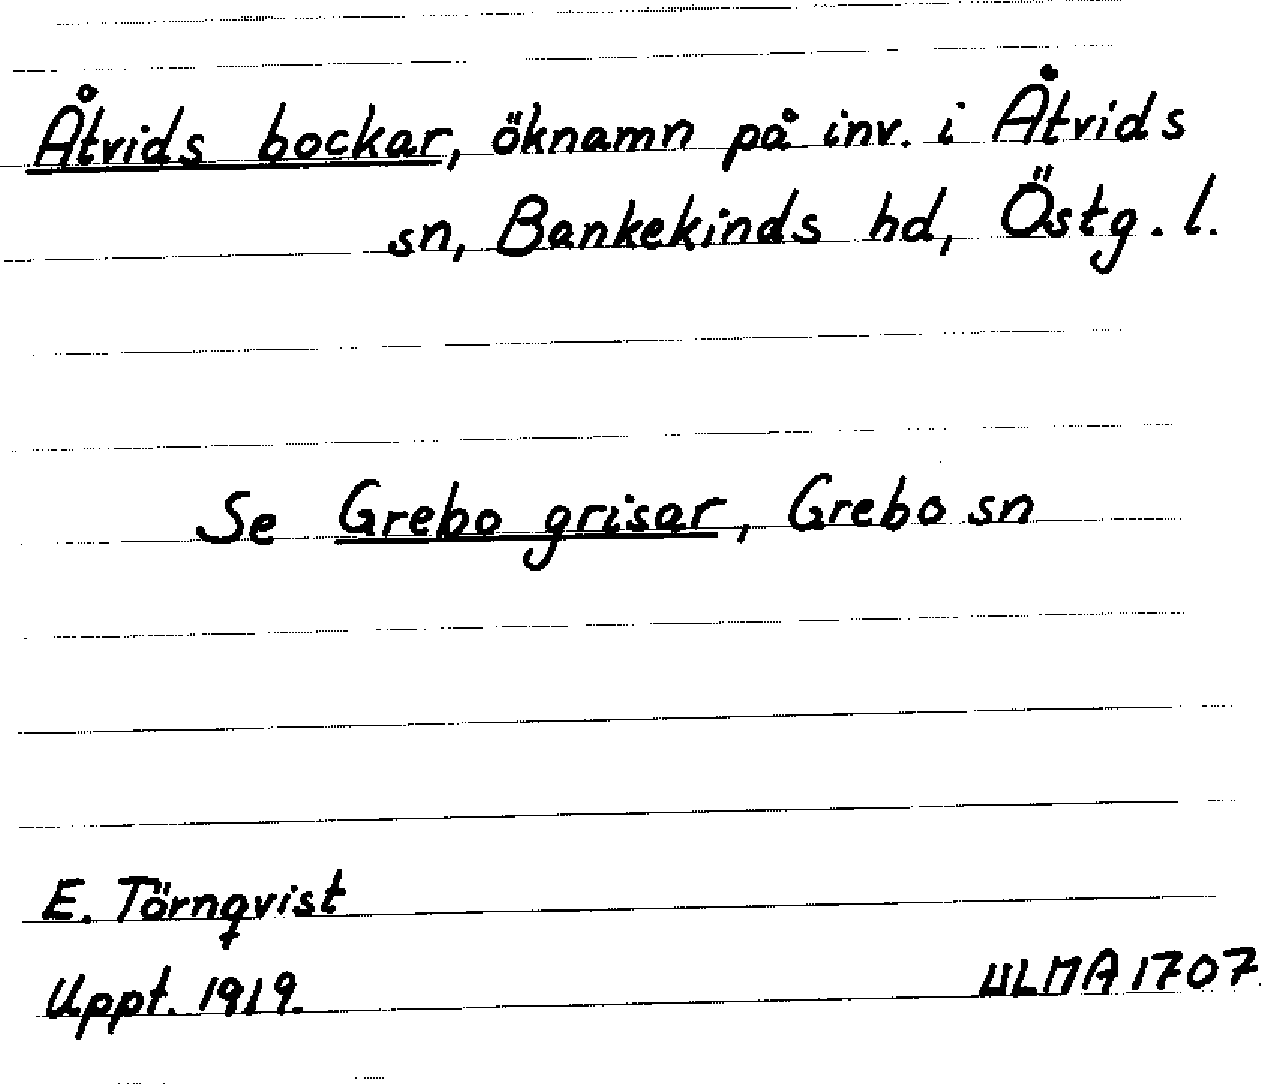 Åtvids bockar, öknamn på inv. i Åtvids
sn, Bankekinds hd, Östg. l.
Se Grebo grisar, Grebo sn
E. Törnqvist
Uppt. 1919.
ULMA 1707